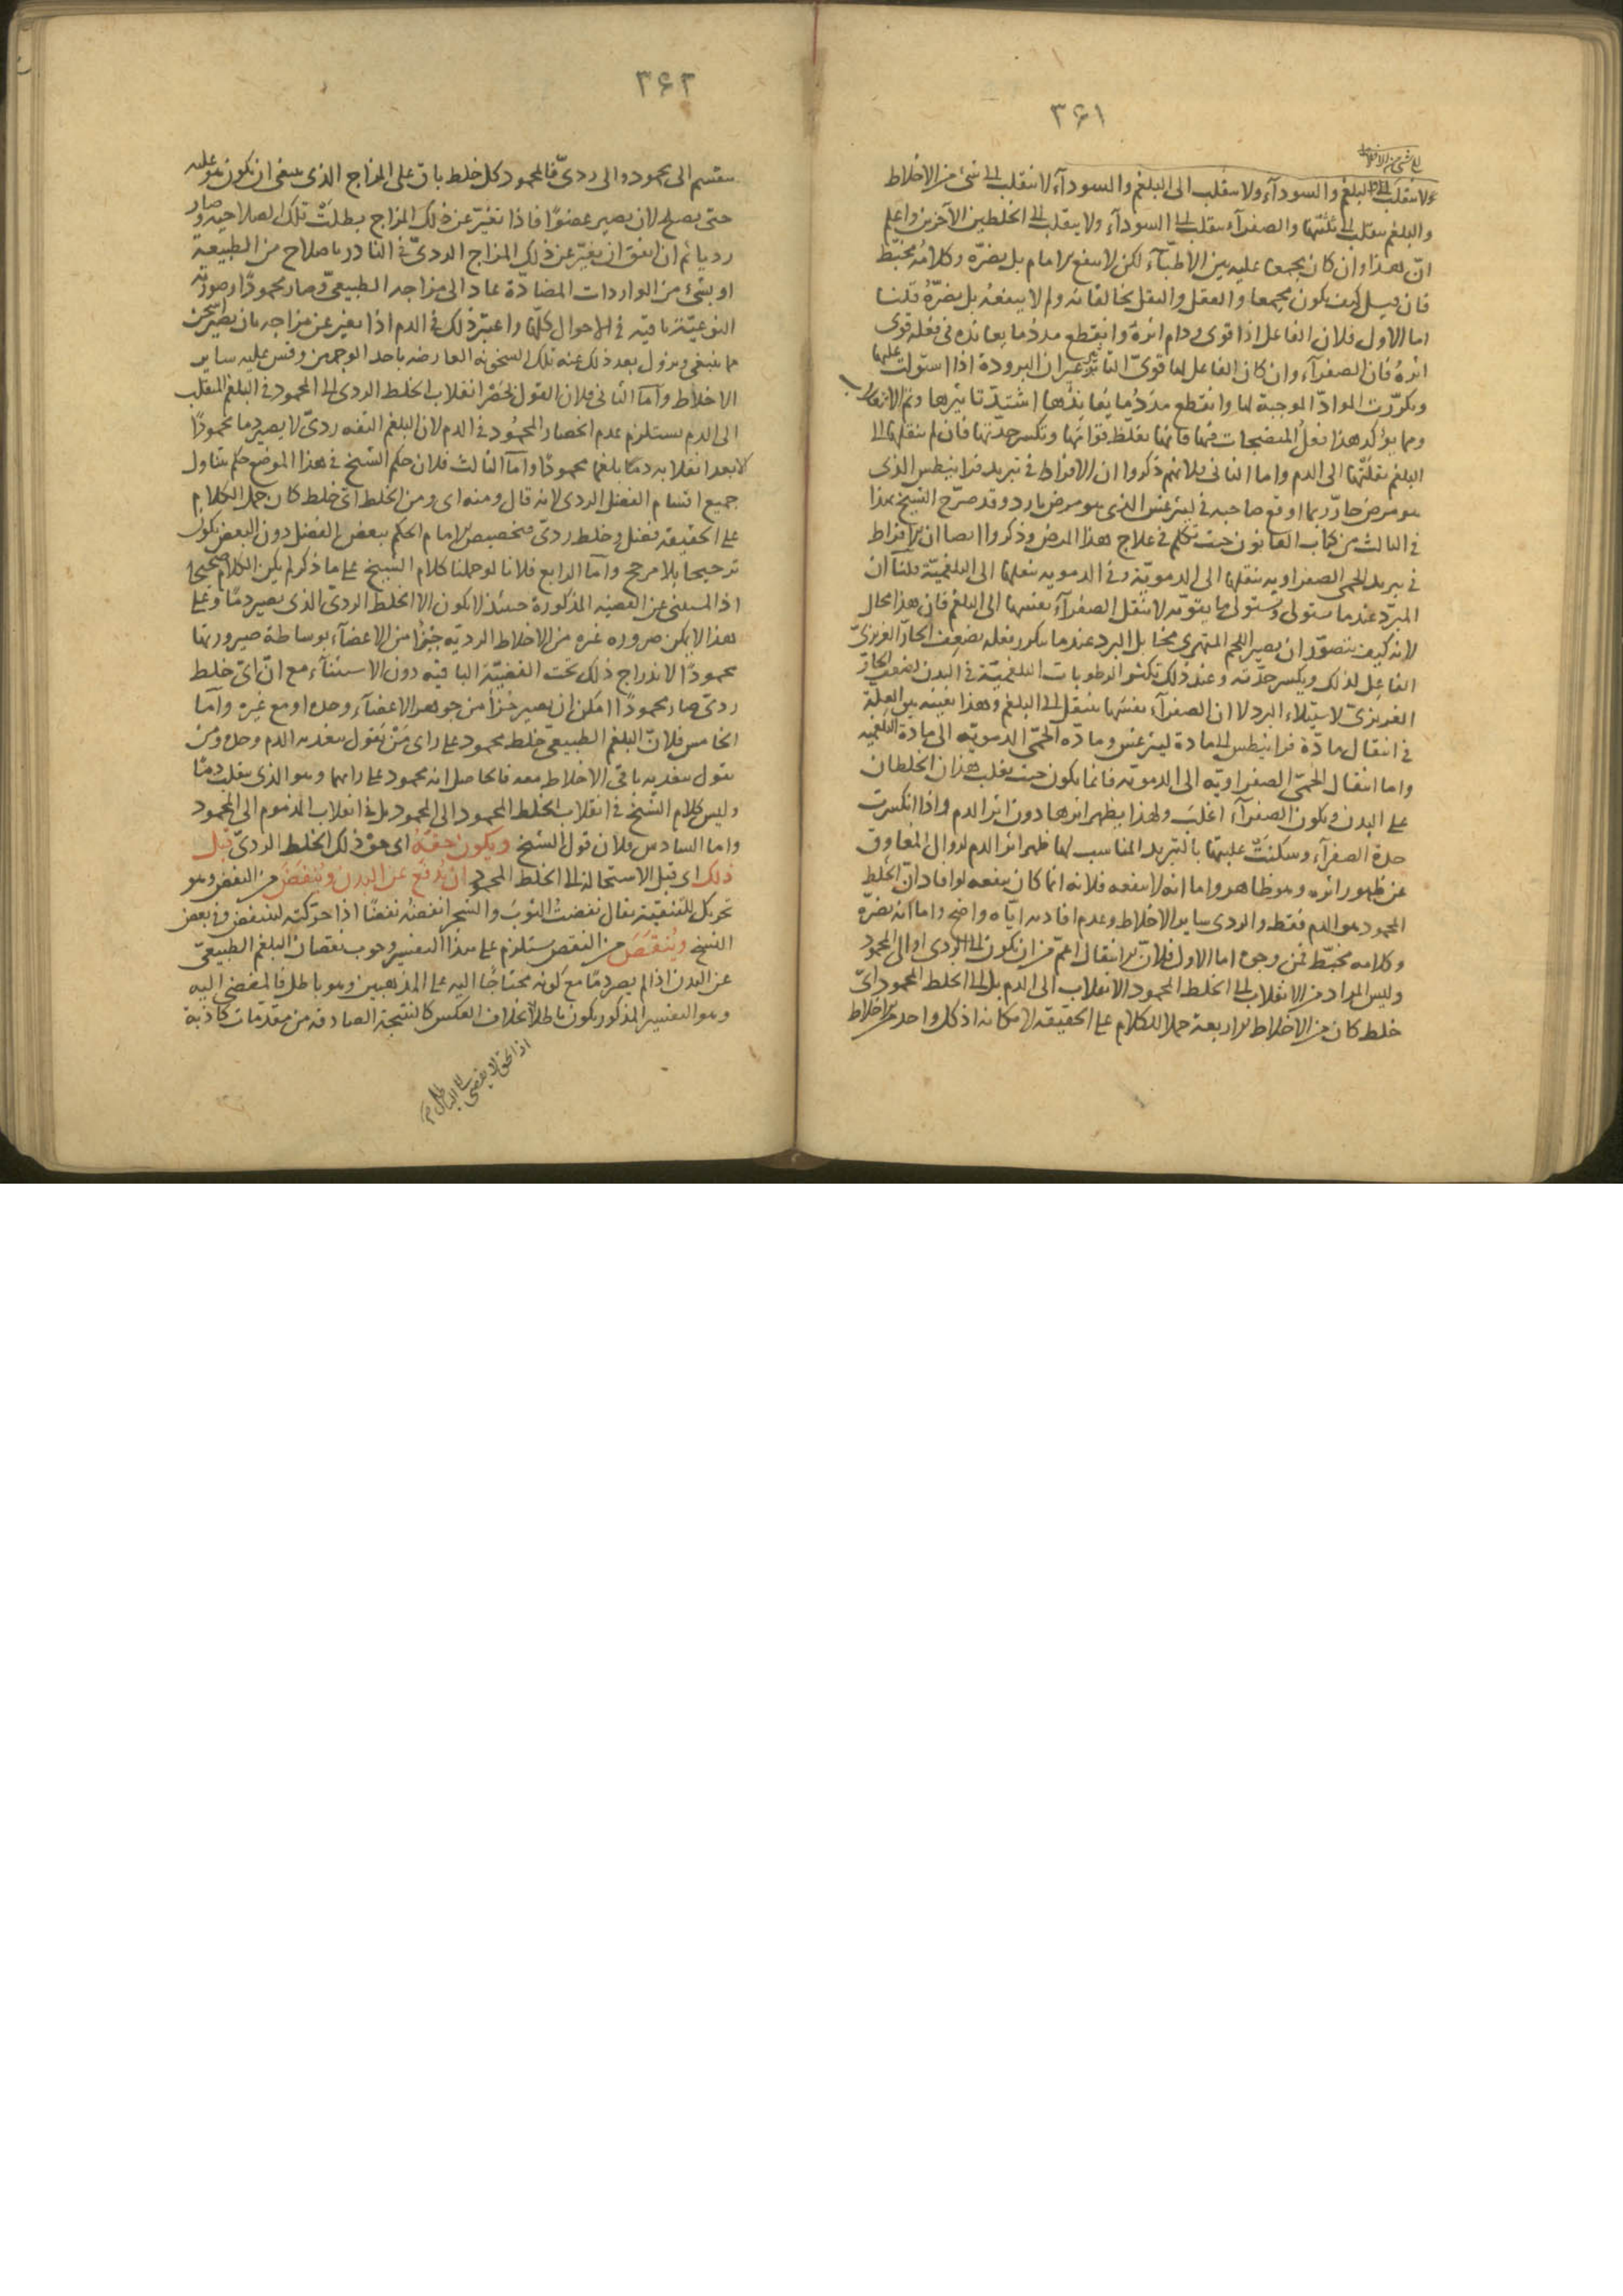 ٣۶١
ولا ينقلب الى البلغم والسودآء ولا ينقلب الى البلغم والسودآء لا ينقلب الى شئ من الاخلاط
والبلغم ينقلب الى ثلثتها والصفرآء ينقلب الى السودآء ولا ينقلب الى الخلطين الآخرين واعلم
انّ هذا وان كان مجمعا عليه بين الاطبّآء لكن لا ينفع الامام بل يضرّه وكلامُه مخبّط
فان قيل كيف يكون مجمعا والعقل والنقل يخالفانه ولم لا ينفعُه بل يضرّهُ قلنا
اما الاول فلان الفاعل اذا قوى ودام اثرهُ وانقطع مددُ ما يعانده فى فعله قوى
اثرهُ فان الصفرآء وان كان الفاعل لها قوىّ التاثير غير ان البرودة اذا استولت عليها
وتكرّرت الموادّ الموجبة لها وانقطع مددُ ما يُعاندُها اشتدّ تاثيرها
ومما يؤكد هذا فعلُ المنضجات فيها فانها تغلّظ قوامَها وتكسر حدّتها فان لم تنقلها الى
البلغم نقلتها الى الدم واما الثانى فلانهم ذكروا ان الافراط فى تبريد قرانيطس الذى
هو مرض حارّ ربما اوقع صاحبه فى ليثرغس الذى هو مرض بارد وقد صرّح الشيخ بهذا
فى الثالث من كتاب القانون حيث تكلم فى علاج هذا المرض وذكروا ايضا ان الافراط
فى تبريد الحمى الصفراويه ينقلها الى الدمويّة وفى الدمويه ينقلها الى البلغميّة قلنا ان
المبرّد عندما يستولى ويستولى ما يقوّيه لا ينقل الصفرآء نفسها الى البلغم فان هذا محال
لانه كيف يتصوّر ان يصير اللحم المتهرى مخا بل البرد عندما يتكرر بفعله يضعف الحارّ الغريزىّ
الفاعِل لذلك ويكسر حدّته وعند ذلك تكثر الرطوبات البلغميّة فى البدن لضعف الحارّ
الغريزىّ لاستيلاء البرد لا ان الصفرآء نفسها ينتقل الى البلغم وهذا بعينه هى العلّة
فى انتقال مادّة قرانيطس الى مادة ليثرغس ومادّه الحمّى الدمويّه الى مادة البلغميه
واما انتقال الحمىّ الصفراويّه الى الدمويّه فانما يكون حيث يغلب هذان الخلطان
على البدن ويكون الصفرآء اغلبَ ولهذا يظهر اثرها دون اثر الدم واذا انكسرت
حدة الصفرآء وسكنتْ غلبتها بالتبريد المناسب لها ظهر اثر الدم لزوال المعاوق
عن ظهور اثره وهو ظاهر واما انه لا ينفعه فلانه انما كان ينفعه لو افاد انّ الخلط
المحمود هو الدم فقط والردى ساير الاخلاط وعدم افادته ايّاه واضح واما انه يضرّه
وكلامه مخبّط فمن وجوه اما الاول فلانّ الانتقال اعمّ من ان يكون الى الردى او الى المحمود
وليس المراد من الانقلاب الى الخلط المحمود الانقلاب الى الدم بل الى الخلط المحمود اىّ
خلط كان من الاخلاط الاربعة حملا للكلام على الحقيقه لامكانه اذ كل واحد من الاخلاط
٣۶٢
ينقسم الى محمود والى ردىّ فالمحمود كل خلط باق على المزاج الذى ينبغى ان يكون هو عليه
حتى يصلح لان يصير عضوًا فاذا تغيّر عن ذلك المزاج بطلَتْ تلك الصلاحيه وصار
رديا ثم ان اتفق ان يغيّر عن ذلك المزاج الردىّ فى النادر باصلاح من الطبيعة
او بشئ من الواردات المضادّة عاد الى مزاجه الطبيعىّ وصار محمودًا وصورته
النوعيّة باقيه فى الاحوال كلّها واعتبر ذلك فى الدم اذا تغير عن مزاجه بان يصير اسخن
مما ينبغى ويزول بعد ذلك عنه تلك السخونه العارضه باحد الوجهين وقس عليه ساير
الاخلاط وامّا الثانى فلان القول بحَصْر انقلاب الخلط الردى الى المحمود فى البلغم المنقلب
الى الدم يستلزم عدم انحصار المحمُود فى الدم لان البلغم التفه ردىّ لا يصير دما محمودًا
الا بعد انقلابه دمًا بلغما محمودًا وامّا الثالث فلان حكم الشيخ فى هذا الموضع حكم يتناول
جميع اقسام الفضل الردى لانه قال ومنه اى ومن الخلط اىّ خلط كان حمل الكلام
على الحقيقه فضل وخلط ردىّ فتخصيص الامام الحكم ببعض الفضل دون البعض يكون
ترجيحا بلا مرجح وامّا الرابع فلانا لو حملنا كلام الشيخ على ما ذكر لم يكن الكلام صحيحا
اذ المستثنى عن القضيه المذكورة حينئذ لا يكون الا الخلط الردىّ الذى يصير دمًا وعلى
هذا لا يمكن صيروره غيره من الاخلاط الرديّه جُزءًا من الاعضآء بوساطة صيرورتها
محمودًا لاندراج ذلك تحت القضيّة الباقيه دون الاستثنآء مع انّ اىّ خلط
ردىّ صار محمودًا امكن ان يصير جُزأ من جوهر الاعضآء وحده او مع غيره وامّا
الخامس فلانّ البلغم الطبيعىّ خلط محمود على راى مَنْ يقول يغذيه الدم وحده ومن
يقول يغذيه باقى الاخلاط معه فالحاصل انه محمود على رايهما وهو الذى ينقلب دمًا
وليس كلام الشيخ فى انقلاب الخلط المحمود الى المحمود بل فى انقلاب المذموم الى المحمود
واما السادس فلان قول الشيخ ويكون حقّهُ اى حق ذلك الخلط الردىّ قبل
ذلك اى قبل الاستحالة الى الخلط المحمود ان يُدْفَع عن البدن ويُنْفَضَ من النفض وهو
تحريك للتنقية يقال نفضتُ الثوبَ والشجر انفضُه نفضًا اذا حرّكته لينتفض وفى بعض
النسخ ويُنْقَصَ من النقص يستلزم على هذا التفسير وجوب نقصان البلغم الطبيعىّ
عن البدن اذا لم يصر دمًا مع كونه محتاجًا اليه على المذهبين وهو باطل فالمفضى اليه
وهو التفسير المذكور يكون باطلا بخلاف العكس كالنتيجة الصادقه من مقدمات كاذبة
اذ الحق لا يفضى الى الباطل